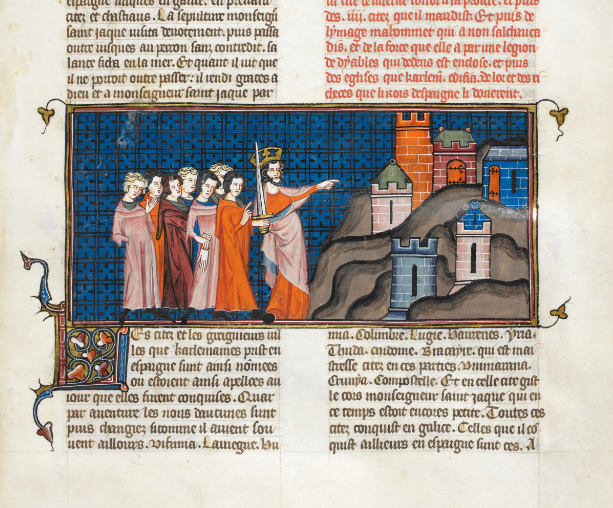 citez et chastiaus. La sepulture monseigu
saint iaque visita devotement. puis passa
outre iusques au perron sanz contredit. sa
lance ficha en la mer. Et quant il vit que
il ne povoit outre passer. il rendi graces a
dieu et a monseigneur saint iaque par
des .iiii. citez que il maudist. Et puis de
lymage mahommet qui a non salchauca
dis. et de la force que elle a par une legion
de dyables qui dedens est enclose. et puis
des eglises que karlem. edifia. de lor et des ri
checes que li rois despaigne li donerent.
Es citez et les greigneurs vil
les que karlemaines prist en
espaigne sunt ainsi nomees
ou estoient ainsi apelees au
iour que elles furent conquises. Quar
par aventure les nons daucunes sunt
puis changiez si comme il avient sou
vent aillours. Visunia. Lamegue. Du
mia. Colimbre. Lugie. Haurenes. Yria.
Thuda. Bracayre. qui est mai
stresse citez en ces parties. Vimmarana.
Crunya. Compostelle. Et en celle cite gist
le cors monseigneur saint iaque qui en
ce temps estoit encores petite. Toutes ces
citez conquist en galice. Celles que il co
quist aillieurs en espaigne sunt ces. A